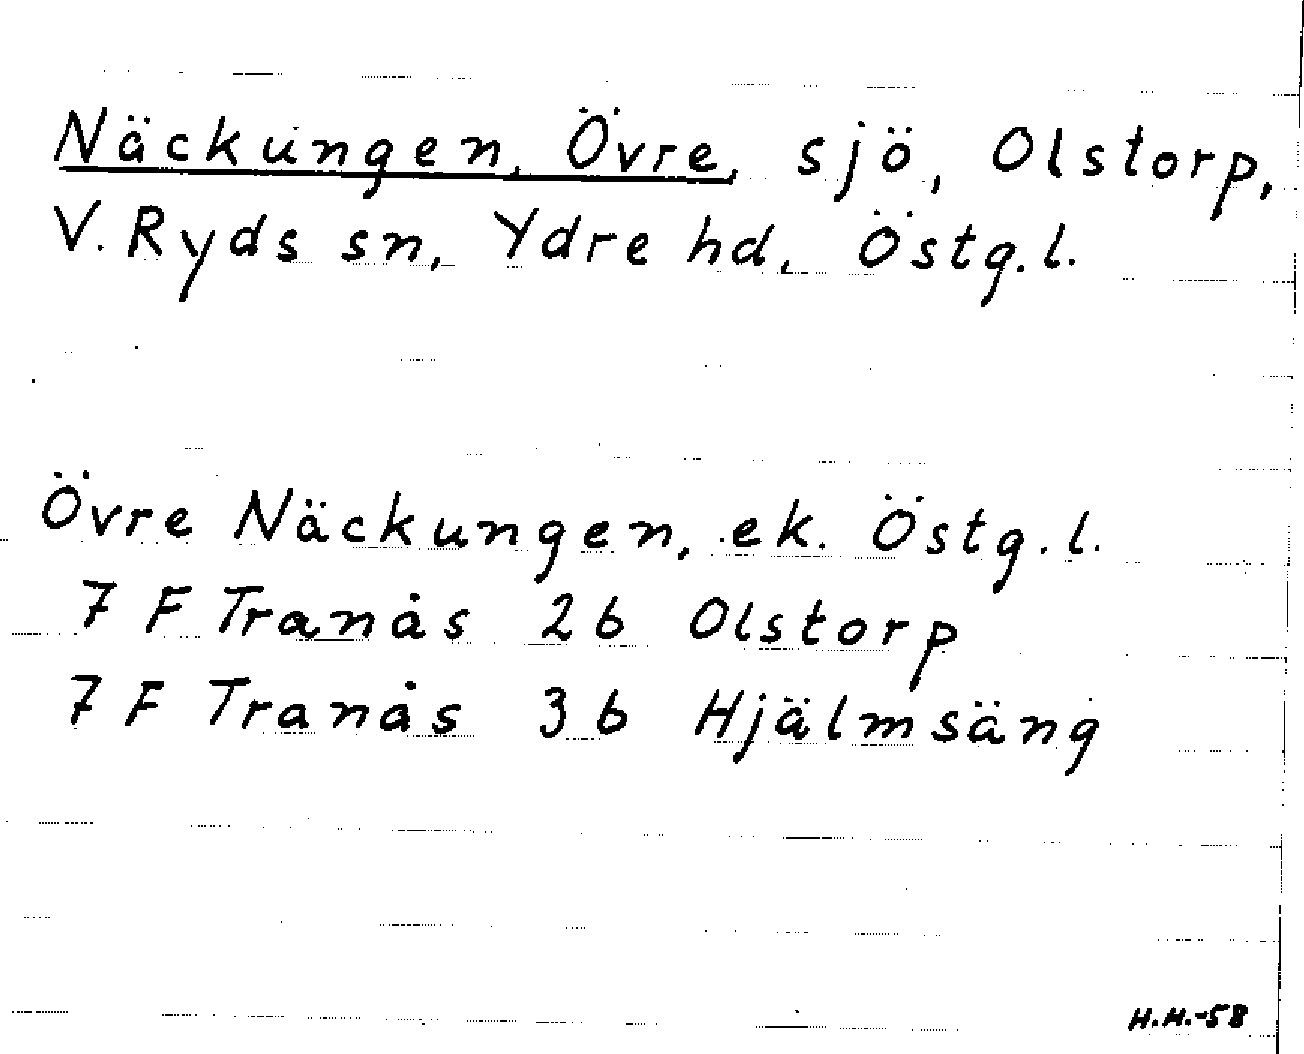 Näckungen, Övre, sjö, Olstorp,
V. Ryds sn, Ydre hd, Östg. l.
Övre Näckungen, ek. Östg. l.
7 F Tranås 2b Olstorp
7 F Tranås 3b Hjälmsäng
H.H.-58